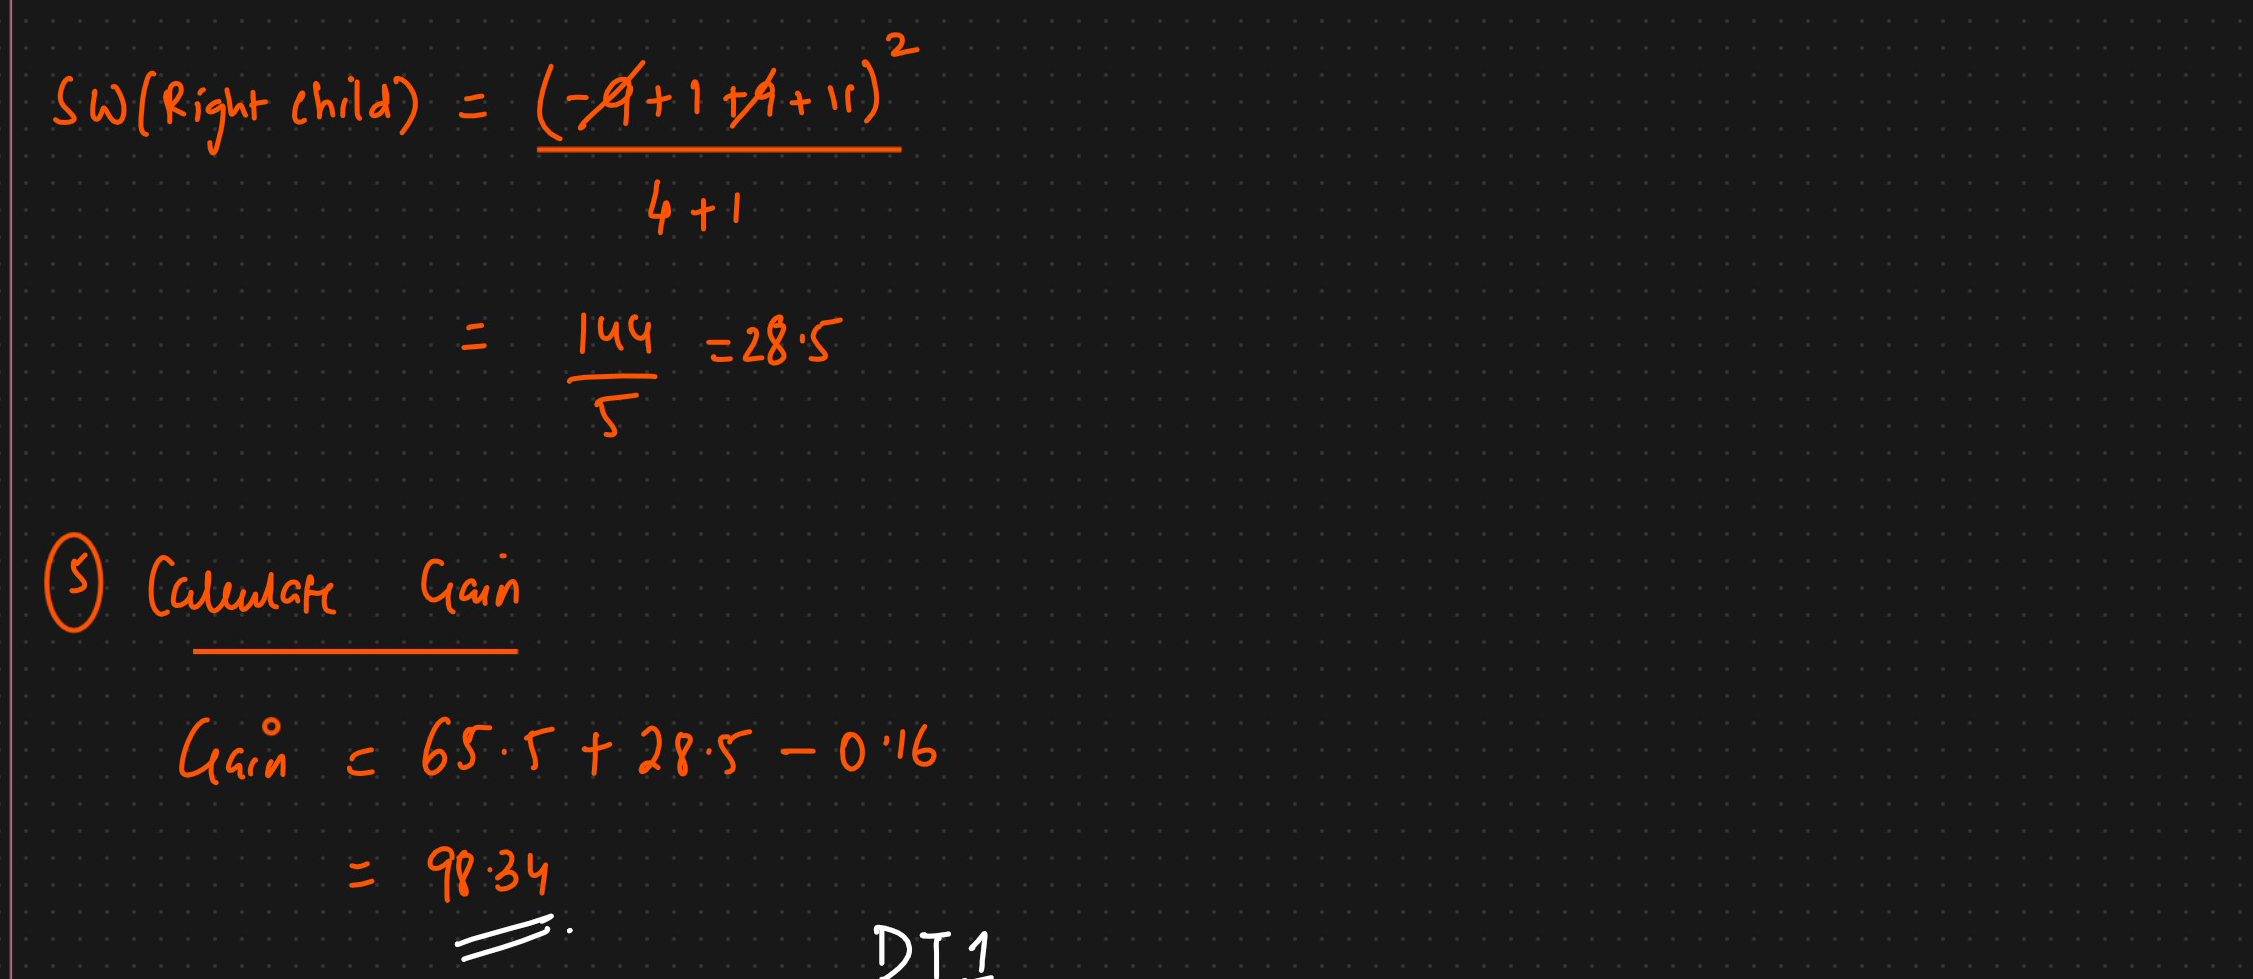 SW(Right child) = (-9 + 1 + 9 + 11)²
4 + 1
= 144 = 28.5
5
5 Calculate Gain
Gain = 65.5 + 28.5 - 0.16
= 98.34
DT1